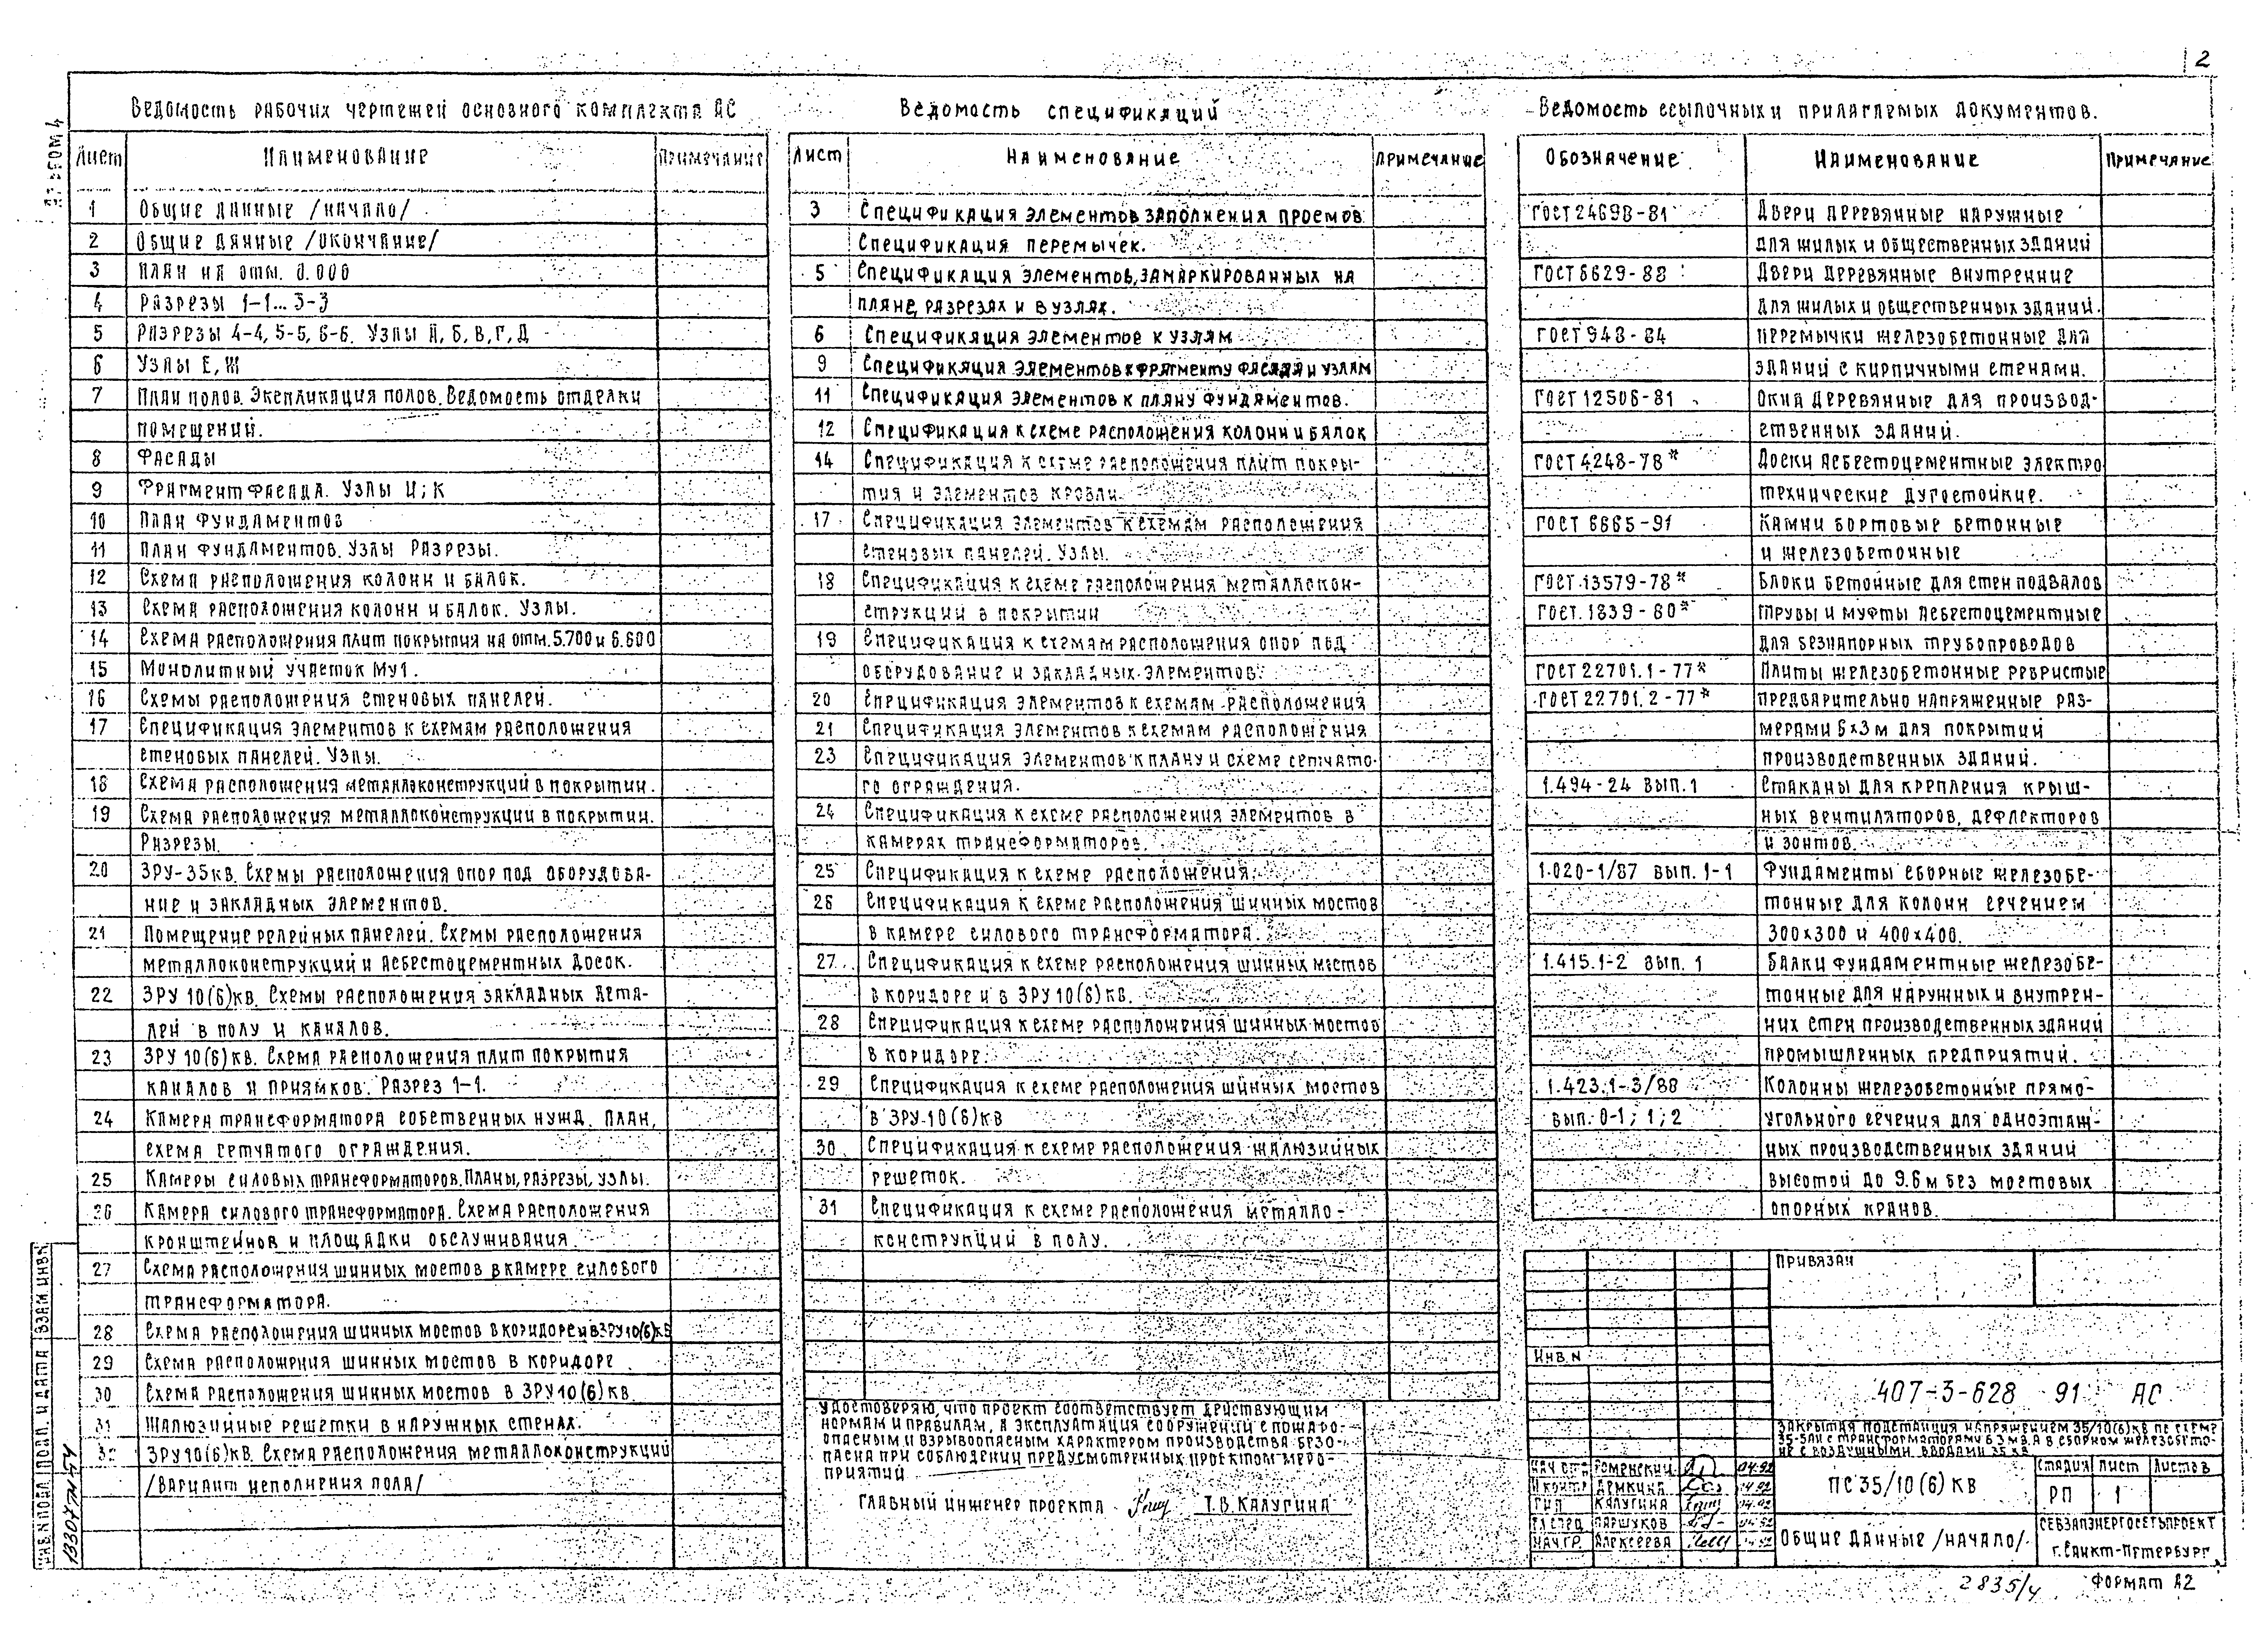 2
Альбом 4
Ведомость рабочих чертежей основного комплекта АС
Лист Наименование Примечание
1 Общие данные /начало/
2 Общие данные /окончание/
3 План на отм. 0.000
4 Разрезы 1-1... 3-3
5 Разрезы 4-4, 5-5, 6-6. Узлы А, Б, В, Г, Д
6 Узлы Е, Ж
7 План полов. Экспликация полов. Ведомость отделки
помещений.
8 Фасады
9 Фрагмент фасада. Узлы И; К
10 План фундаментов
11 План фундаментов. Узлы Разрезы.
12 Схема расположения колонн и балок.
13 Схема расположения колонн и балок. Узлы.
14 Схема расположения плит покрытия на отм. 5.700 и 6.600
15 Монолитный участок Му1.
16 Схемы расположения стеновых панелей.
17 Спецификация элементов к схемам расположения
стеновых панелей. Узлы.
18 Схема расположения металлоконструкций в покрытии.
19 Схема расположения металлоконструкции в покрытии.
Разрезы.
20 ЗРУ-35кв. Схемы расположения опор под оборудова-
ние и закладных элементов.
21 Помещение релейных панелей. Схемы расположения
металлоконструкций и асбестоцементных досок.
22 ЗРУ 10(6)кв. Схемы расположения закладных дета-
лей в полу и каналов.
23 ЗРУ 10(6)кв. Схема расположения плит покрытия
каналов и приямков. Разрез 1-1.
24 Камера трансформатора собственных нужд. План,
схема сетчатого ограждения.
25 Камеры силовых трансформаторов. Планы, разрезы, узлы.
26 Камера силового трансформатора. Схема расположения
кронштейнов и площадки обслуживания.
27 Схема расположения шинных мостов в камере силового
трансформатора.
28 Схема расположения шинных мостов в коридоре и в ЗРУ 10(6)кв
29 Схема расположения шинных мостов в коридоре
30 Схема расположения шинных мостов в ЗРУ 10(6)кв.
31 Жалюзийные решетки в наружных стенах.
32 ЗРУ 10(6)кв. Схема расположения металлоконструкций
/вариант исполнения пола/
Ведомость спецификаций
Лист Наименование Примечание
3 Спецификация элементов заполнения проемов.
Спецификация перемычек.
5 Спецификация элементов, замаркированных на
плане, разрезах и в узлах.
6 Спецификация элементов к узлам
9 Спецификация элементов к фрагменту фасада и узлам
11 Спецификация элементов к плану фундаментов.
12 Спецификация к схеме расположения колонн и балок
14 Спецификация к схеме расположения плит покры-
тия и элементов кровли.
17 Спецификация элементов к схемам расположения
стеновых панелей. Узлы.
18 Спецификация к схеме расположения металлокон-
струкций в покрытии
19 Спецификация к схемам расположения опор под
оборудование и закладных элементов.
20 Спецификация элементов к схемам расположения
21 Спецификация элементов к схемам расположения
23 Спецификация элементов к плану и схеме сетчато-
го ограждения.
24 Спецификация к схеме расположения элементов в
камерах трансформаторов.
25 Спецификация к схеме расположения.
26 Спецификация к схеме расположения шинных мостов
в камере силового трансформатора.
27 Спецификация к схеме расположения шинных мостов
в коридоре и в ЗРУ 10(6)кв.
28 Спецификация к схеме расположения шинных мостов
в коридоре.
29 Спецификация к схеме расположения шинных мостов
в ЗРУ-10(6)кв
30 Спецификация к схеме расположения жалюзийных
решеток.
31 Спецификация к схеме расположения металло-
конструкций в полу.
Удостоверяю, что проект соответствует действующим
нормам и правилам, а эксплуатация сооружений с пожаро-
опасным и взрывоопасным характером производства безо-
пасна при соблюдении предусмотренных проектом меро-
приятий
Главный инженер проекта Т.В. Калугина
Ведомость ссылочных и прилагаемых документов.
Обозначение Наименование Примечание
ГОСТ 24698-81 Двери деревянные наружные
для жилых и общественных зданий
ГОСТ 6629-88 Двери деревянные внутренние
для жилых и общественных зданий.
ГОСТ 948-84 Перемычки железобетонные для
зданий с кирпичными стенами.
ГОСТ 12506-81 Окна деревянные для производ-
ственных зданий.
ГОСТ 4248-78* Доски асбестоцементные электро
технические дугостойкие.
ГОСТ 6665-91 Камни бортовые бетонные
и железобетонные
ГОСТ 13579-78* Блоки бетонные для стен подвалов
ГОСТ 1839-80* Трубы и муфты асбестоцементные
для безнапорных трубопроводов
ГОСТ 22701.1-77* Плиты железобетонные ребристые
ГОСТ 22701.2-77* предварительно напряженные раз-
мерами 6х3м для покрытий
производственных зданий.
1.494-24 вып.1 Стаканы для крепления крыш-
ных вентиляторов, дефлекторов
и зонтов.
1.020-1/87 вып. 1-1 Фундаменты сборные железобе-
тонные для колонн сечением
300х300 и 400х400.
1.415.1-2 вып. 1 Балки фундаментные железобе-
тонные для наружных и внутрен-
них стен производственных зданий
промышленных предприятий.
1.423.1-3/88 Колонны железобетонные прямо-
вып. 0-1; 1; 2 угольного сечения для одноэтаж-
ных производственных зданий
высотой до 9.6м без мостовых
опорных кранов.
Привязан
Инв. N
407-3-628 91 АС
Закрытая подстанция напряжением 35/10(6)кв по схеме
35-5АН с трансформаторами 6.3 мва в сборном железобето-
не с воздушными вводами 35 кв
Нач. отд. Роменский 04.92
Н.контр. Демкина 04.92
ГИП Калугина 04.92
Гл.спец. Паршуков 04.92
Нач.гр. Алексеева 04.92
ПС 35/10(6) кв
Стадия Лист Листов
РП 1
Общие данные /начало/.
Севзапэнергосетьпроект
г. Санкт-Петербург
Инв.N подл. Подп. и дата Взам.инв.N
13307тм-54
2835/4 Формат А2